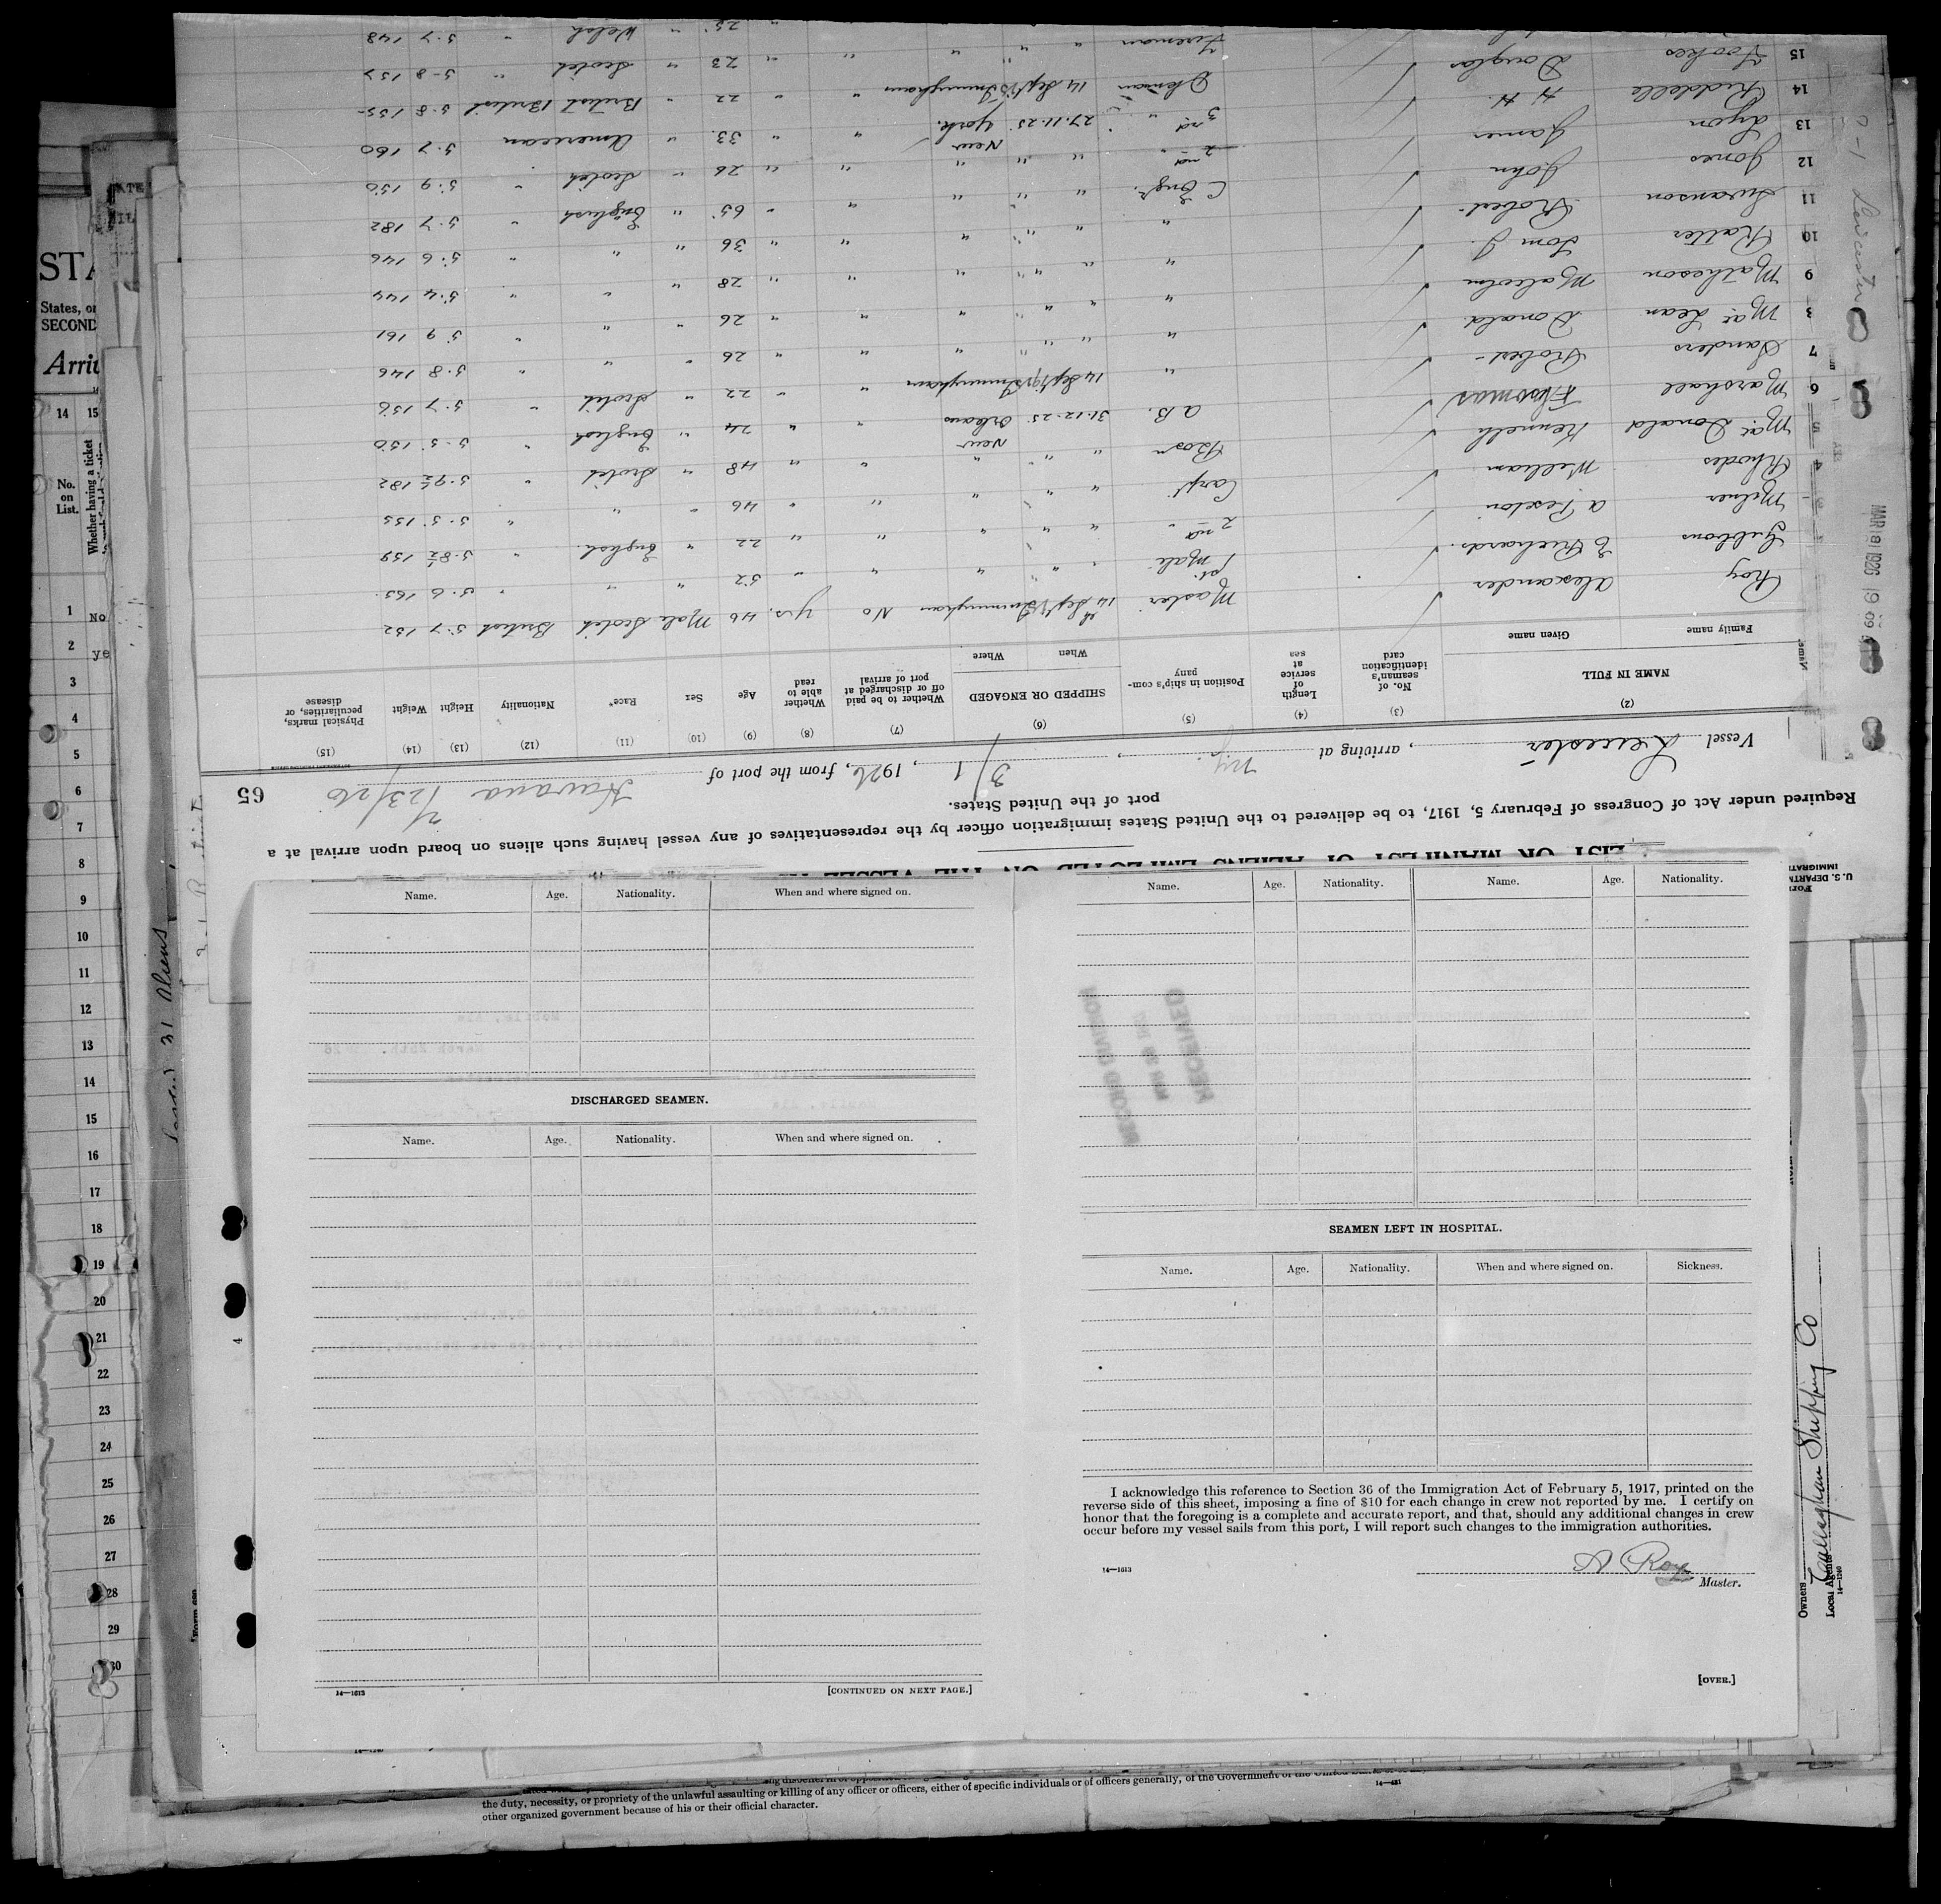 LIST OR MANIFEST OF ALIENS EMPLOYED ON THE VESSEL
Required under Act of Congress of February 5, 1917, to be delivered to the United States immigration officer by the representatives of any vessel having such aliens on board upon arrival at a
port of the United States.
65
Vessel Leicester, arriving at , 3/1, 1926, from the port of Havana 2/23/26
(2) (3) (4) (5) (6) (7) (8) (9) (10) (11) (12) (13) (14) (15)
NAME IN FULL Family name Given name
No. of seaman's identification card
Length of service at sea
Position in ship's company
SHIPPED OR ENGAGED When Where
Whether to be paid off or discharged at port of arrival
Whether able to read
Age Sex Race* Nationality Height Weight
Physical marks, peculiarities, or disease
Roy Alexander Master 14 Sept Immingham No Yes 46 Male Scotch British 5.7 152
Gibbons E Richards 1st Mate " " " " " 52 " " " 5.6 165
Milner A. Preston 2nd " " " " " " 22 " English " 5.8½ 159
4 Rhodes William Carpt. " " " " " 46 " " " 5.5 155
5 MacDonald Kenneth Bosn " " " " " 48 " Scotch " 5.9½ 182
6 Marshall Thomas A.B. 31.12.25 New Orleans " " 24 " English " 5.5 150
7 Sanders Robert " 14 Sept Immingham " " 22 " Scotch " 5.7 156
8 MacLean Donald " " " " " " 26 " " " 5.8 146
9 Matheson Malcolm " " " " " " 26 " " " 5.9 161
10 Ratter Tom J. " " " " " " 28 " " " 5.4 144
11 Swanson Robert " " " " " " 36 " " " 5.6 146
12 Jones John C Engr. " " " " " 65 " English " 5.7 182
13 Lyon James 2nd " " " " " " 26 " Scotch " 5.9 150
14 Riddell H. H. 3rd " 27.11.25 New York. " " 33 " American 5.7 160
15 Vookes Douglas Dkman 14 Sept Immingham " " 22 " British British 5.8 155
Fireman " " " " " 23 " Scotch " 5-8 157
25 " Welsh " 5.7 148
Name. Age. Nationality. When and where signed on.
DISCHARGED SEAMEN.
Name. Age. Nationality. When and where signed on.
14—1613
[CONTINUED ON NEXT PAGE.]
Name. Age. Nationality. Name. Age. Nationality.
RECEIVED
RECORD DIVISION
SEAMEN LEFT IN HOSPITAL.
Name. Age. Nationality. When and where signed on. Sickness.
I acknowledge this reference to Section 36 of the Immigration Act of February 5, 1917, printed on the
reverse side of this sheet, imposing a fine of $10 for each change in crew not reported by me. I certify on
honor that the foregoing is a complete and accurate report, and that, should any additional changes in crew
occur before my vessel sails from this port, I will report such changes to the immigration authorities.
14—1613
A Roy
Master.
[OVER.]
Owners
Local Agents Callaghan Shipping Co
14—1240
MAR 8 1926
Leicester
31 Aliens
STA
States, or
SECOND
Arri
14 15
No. on List.
Whether having a ticket
1 No
2 ye
3
4
5
6
7
8
9
10
11
12
13
14
15
16
17
18
19
20
21
22
23
24
25
26
27
28
29
30
4
the duty, necessity, or propriety of the unlawful assaulting or killing of any officer or officers, either of specific individuals or of officers generally, of the Government of the United States
other organized government because of his or their official character.
14—481